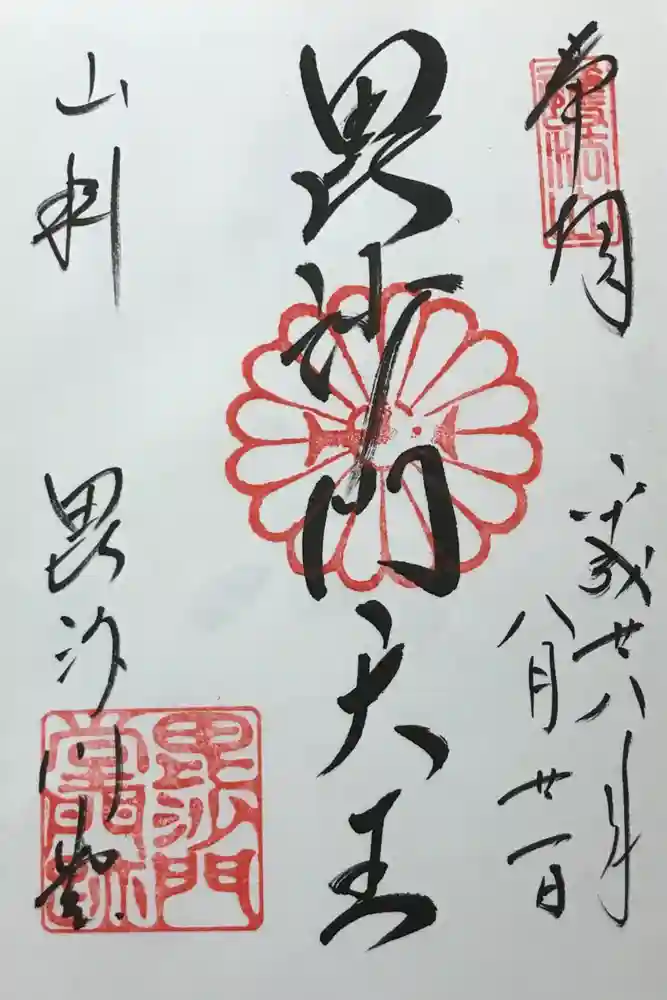 奉拝
護法山
平成廿八年
八月廿一日
毘沙門天王
山科
毘沙門堂
毘沙門
堂門跡